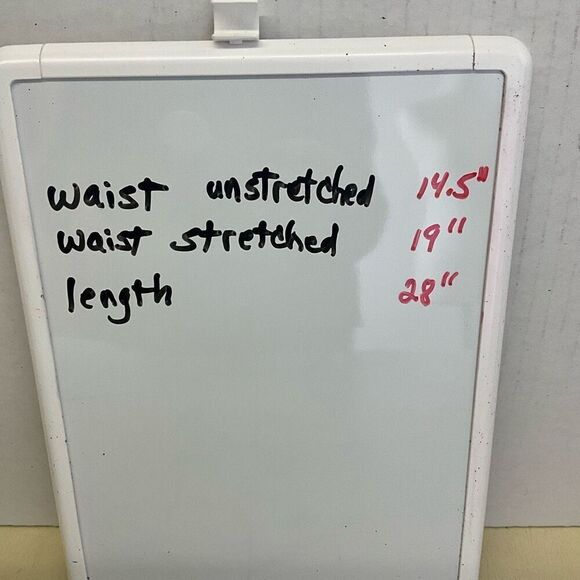 waist unstretched 14.5"
waist stretched 19"
length 28"